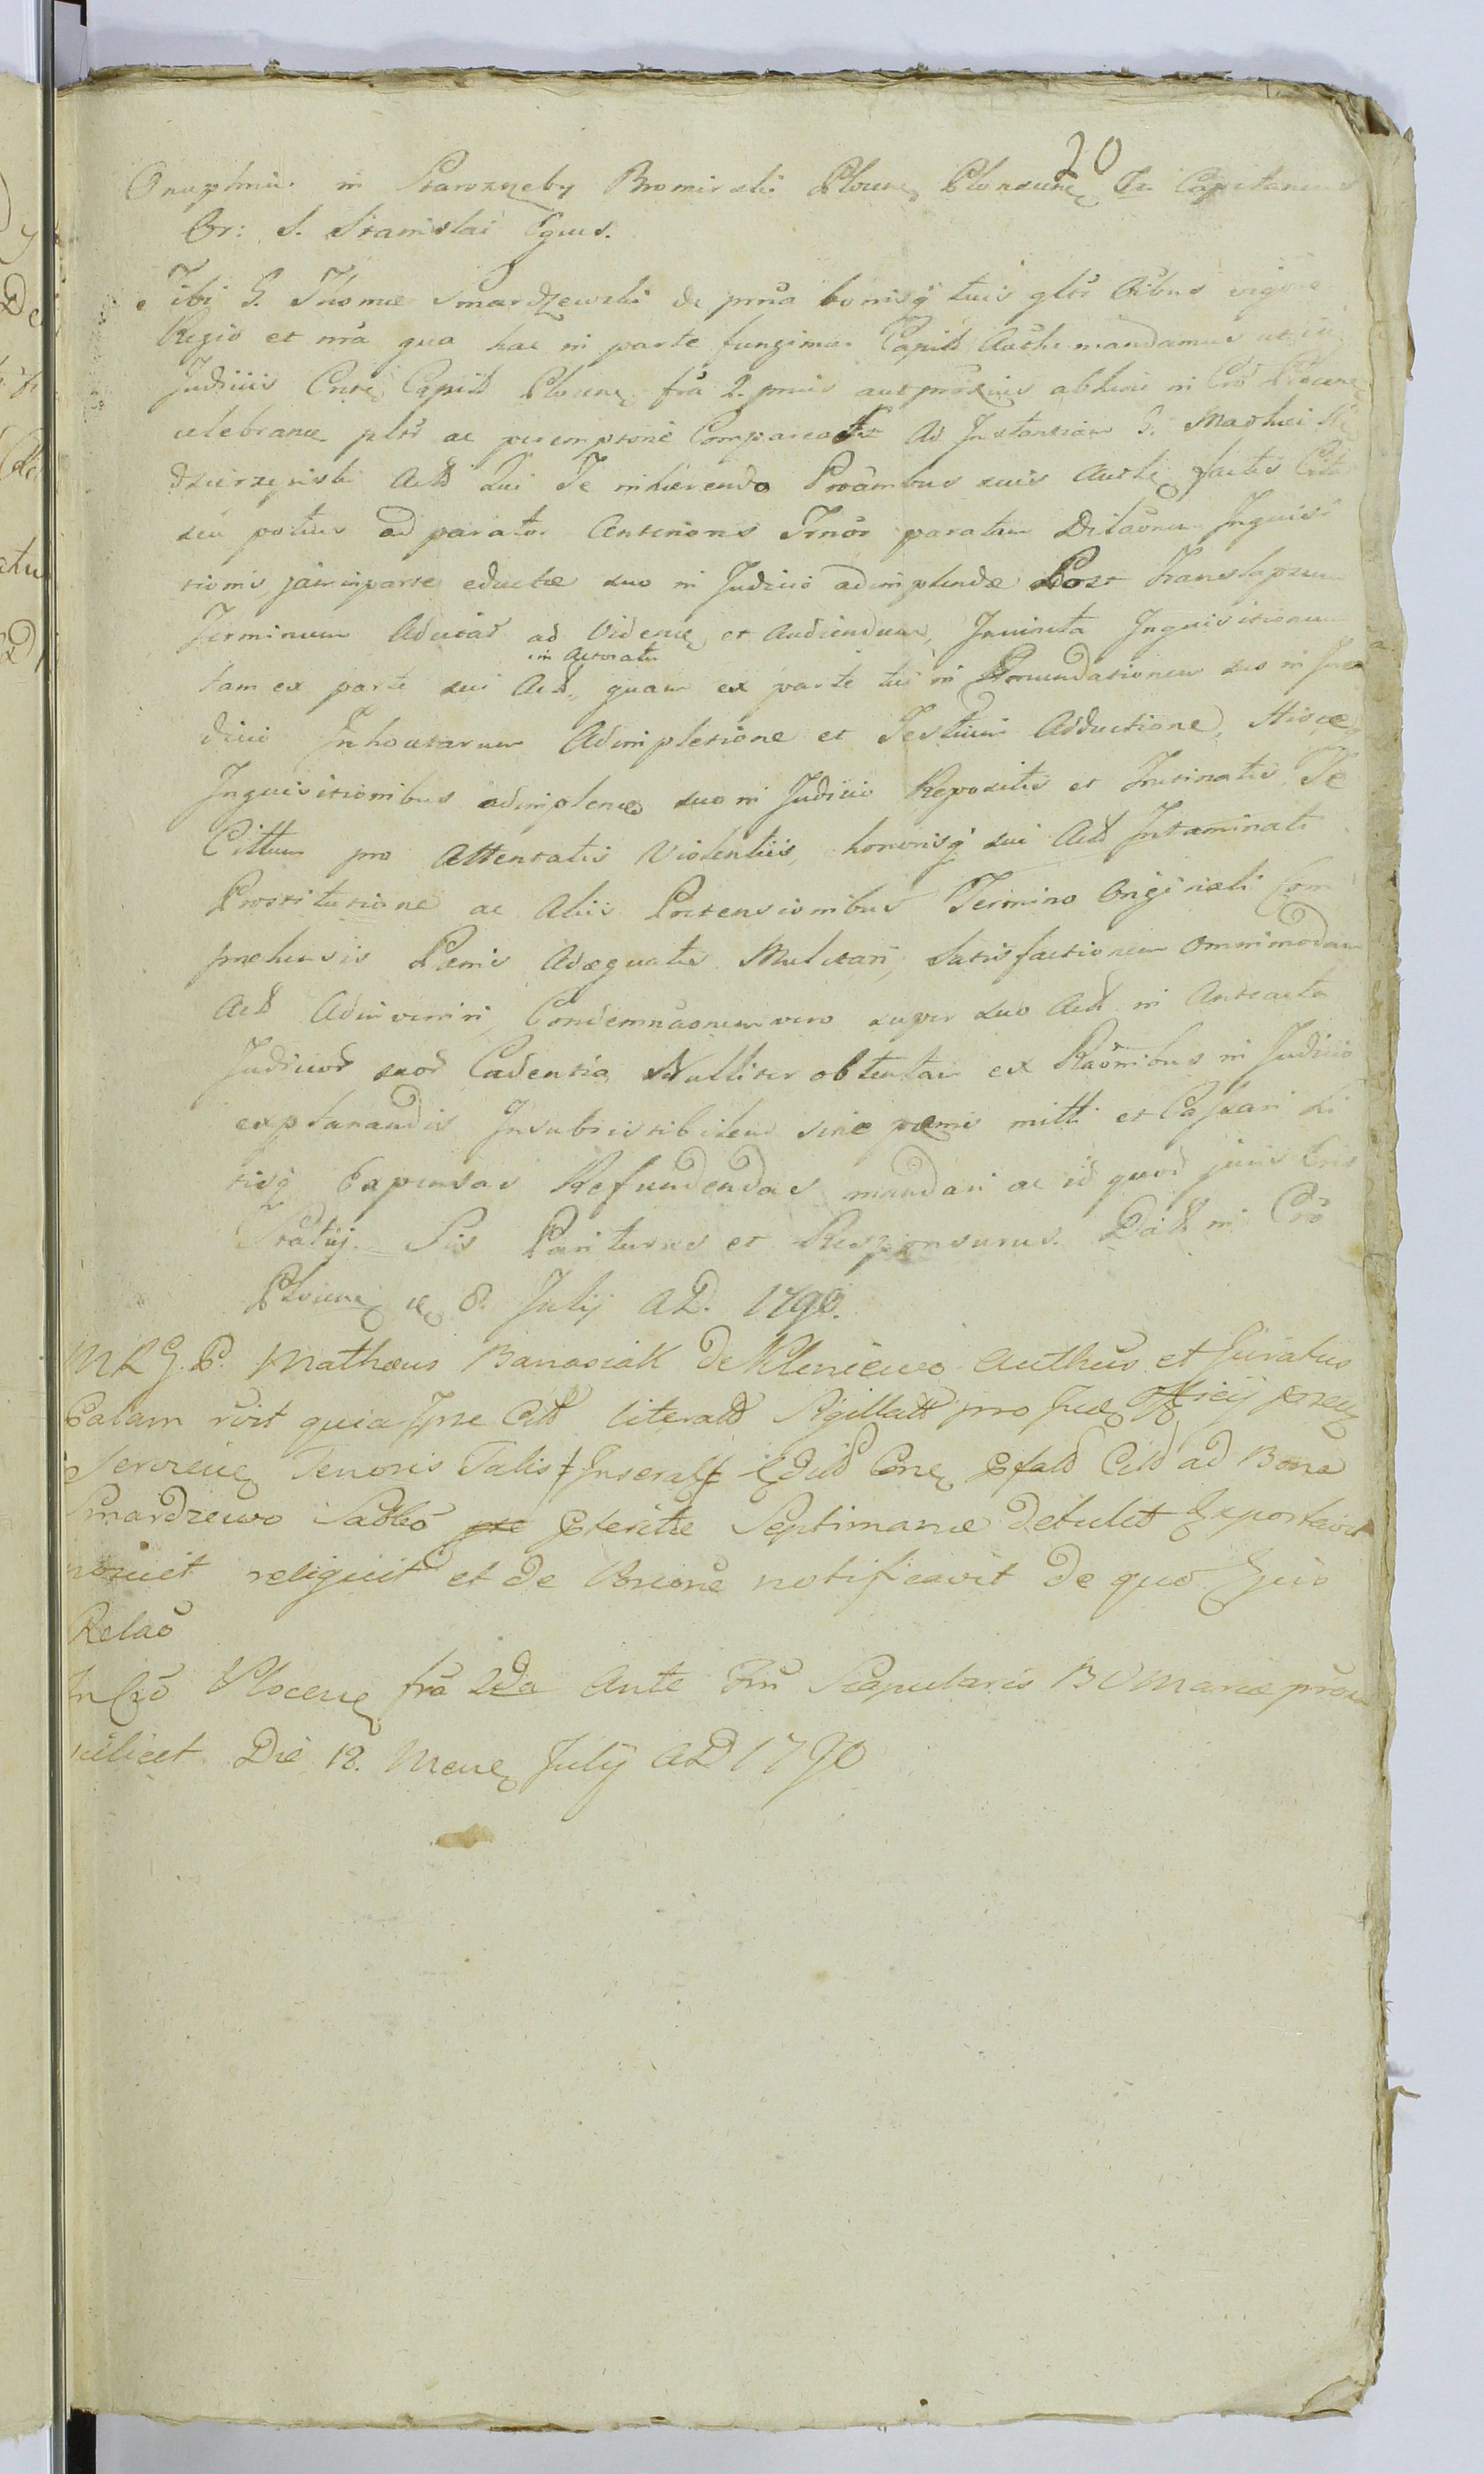 20
Onuphrius in Starozręby Bromirski Plocen Plonscen Gr. Capitaneus
Or: S. Stanislai Eques.
Tibi G. Thomæ Smardzewski de prna bonisq tuis gltr oibus vigore
Regio et nra qua hac in parte fungimur Capitt Authe mandamus ut in
Judiciis Cnsi Captt Plocen fra 2. pmis aut proxius abhinc in Cro Plocen
celebrann pltr ac peremptorie Compareas Ad Instantiam G. Mathei
dzierzynski Actt Qui Te inhærendo Proambus suis Authe factis
seu potius ad parator Anterioris Trnor paratam Dilaonem Inquisi
tionis jam in parte eductæ suo in Judicio adimplendæ Post Translapsum
Terminum Adcitat ad Videnc et Audiendum, Juncta Inquisitionum
in Actoratu
tam ex parte sui Act, quam ex parte tui in Emundationem sës in Ju
dicio Inhoatarum Adimpletione et Testium Adductione, Hisce
Inquisitionibus adimplens suo in Judicio Repositis et Intinatis Te
Cittum pro Attentatis Violentiis, honorisq sui Act Intaminati
Prostitutione ac Aliis Prætensionibus Termino Originali Com
præhensis Pænis Adæquatis Mulctari, Satisfactionem omnimodam
Act Adinveniri, Condemnaonem vero super suo Act in Anteacta
Judicior suor Cadentia Nulliter obtentam ex Raonibus in Judicio
explanandis Insubsistibilem sine pœnis mitti et Cassari Li
tisq Expensas Refundendas mandari ac id quod juris erit
Statui. Sis Pariturus et Responsurus. Datt in Cro
Plocen d 8. Julij A D. 1790.
M R G. P. Mathæus Banasiak de Kleniewo authus et Juratus
Palam rvit quia Ipse Citt literatt Sigillatt pro Jue Officij prsen
Servien Tenoris Talis Inserat Edidt Cone Citt ad Bona
Smardzewo Sabbo Pteritæ Septimanæ detulit Exportavit
posuit reliquit et de Posione notificavit de quo Ejus
Relao
In Cro Plocen fra 2da Ante Fm Scapularis B V Mariæ prox
scilicet Die 12. Mens Julij A D 1790